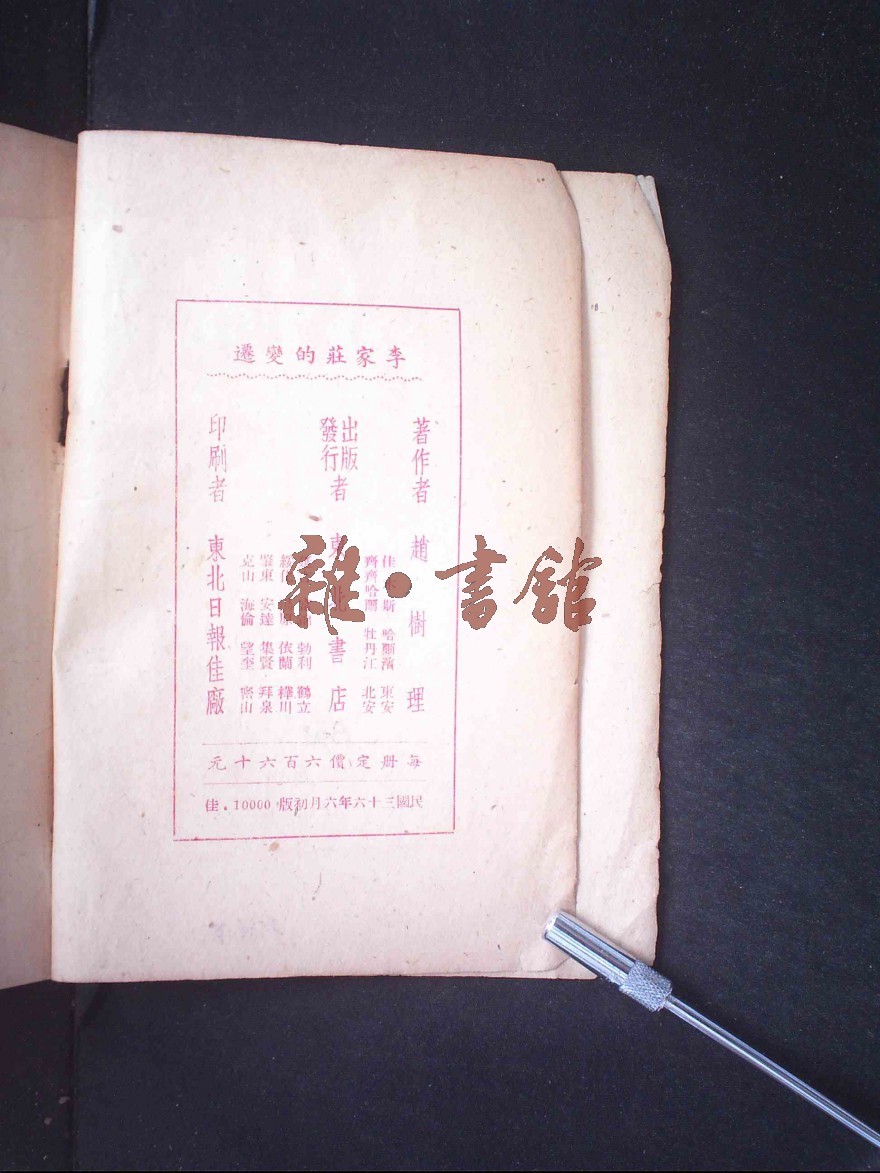 李家莊的變遷
著作者 趙樹理
出版
發行者 東北書店
佳木斯 哈爾濱 東安
齊齊哈爾 牡丹江 北安
勃利 鶴立
依蘭 樺川
肇東 安達 集賢 拜泉
克山 海倫 望奎 密山
印刷者 東北日報佳廠
每册定價六百六十元
民國三十六年六月初版 10000.佳
雜·書館